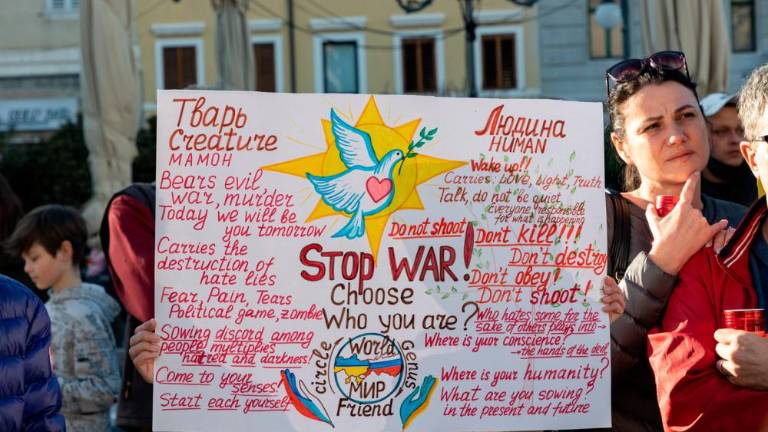 Тварь
Creature
МАМОН
Bears evil,
war, murder
Today we will be
you tomorrow
Carries the
destruction of
hate lies
Fear, Pain, Tears
Political game, zombie
Sowing discord among
people multiplies
hatred and darkness
Come to your
senses!
Start each yourself
Do not shoot!
STOP WAR!
Choose
Who you are?
circle
World
Genus
МИР
Friend
Людина
HUMAN
Wake up!!
Carries Love, Light, Truth
Talk, do not be quiet
Everyone responsible
for what is happening
Don't kill!!!
Don't destroy
Don't obey!
Don't shoot!
Who hates some for the
sake of others plays into→
Where is your conscience?
→the hands of the devil
Where is your humanity?
What are you sowing?
in the present and future